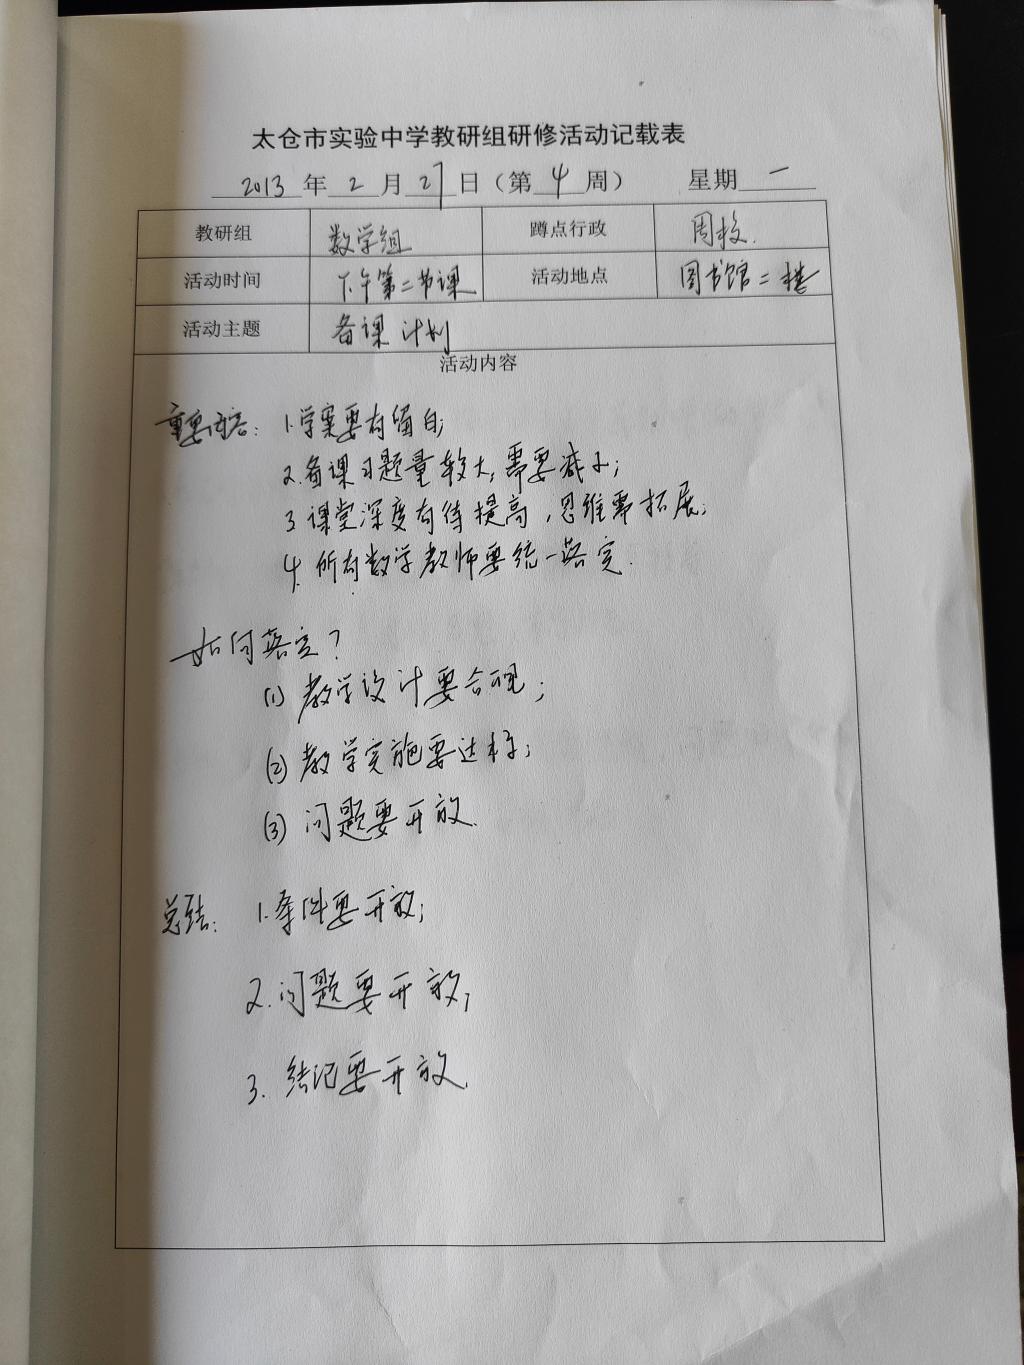 太仓市实验中学教研组研修活动记载表
2013 年 2 月 27 日（第 4 周） 星期 一
教研组 数学组 蹲点行政 周校.
活动时间 下午第二节课 活动地点 图书馆二楼
活动主题 备课计划
活动内容
重要内容: 1.学案要有留白;
2.备课习题量较大,需要减小;
3 课堂深度有待提高,思维需拓展;
4.所有数学教师要统一落实.
如何落实?
(1) 教学设计要合理;
(2) 教学实施要达标;
(3) 问题要开放.
总结: 1.条件要开放;
2.问题要开放;
3. 结论要开放.